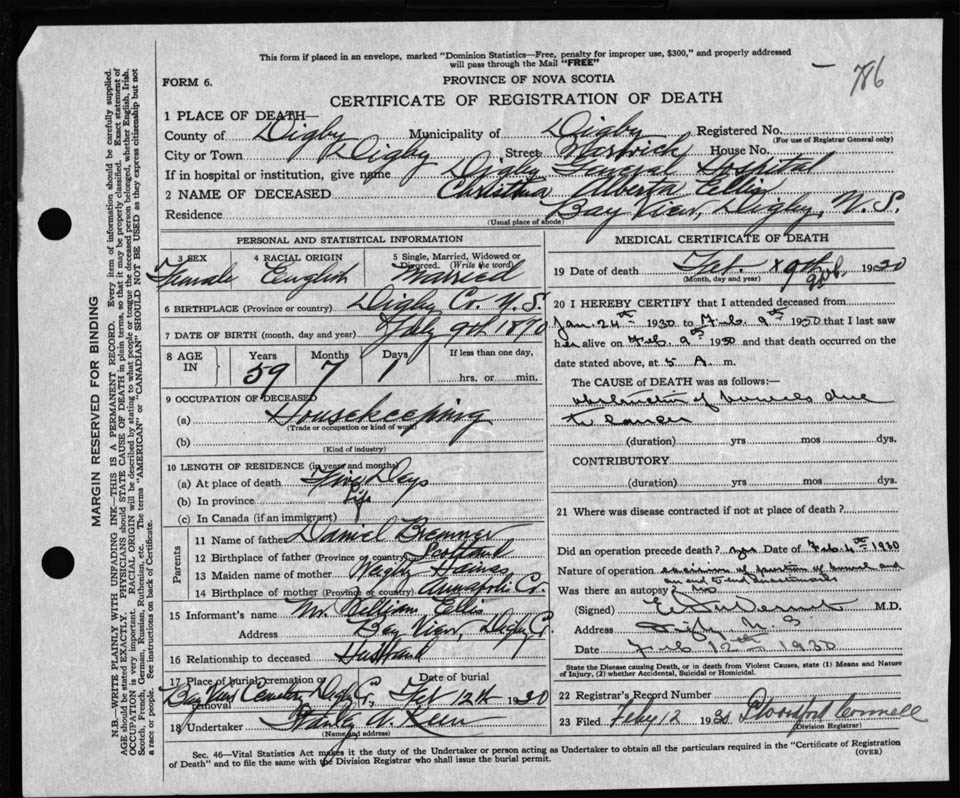 This form if placed in an envelope, marked "Dominion Statistics—Free, penalty for improper use, $300," and properly addressed
will pass through the Mail "FREE"
786
FORM 6.
PROVINCE OF NOVA SCOTIA
CERTIFICATE OF REGISTRATION OF DEATH
1 PLACE OF DEATH—
County of Digby Municipality of Digby Registered No.
(For use of Registrar General only)
City or Town Digby Street Warwick House No.
If in hospital or institution, give name Digby General Hospital
2 NAME OF DECEASED Christina Alberta Ellis
Residence Bay View, Digby, N. S.
(Usual place of abode)
PERSONAL AND STATISTICAL INFORMATION
3 SEX 4 RACIAL ORIGIN 5 Single, Married, Widowed or
Divorced. (Write the word)
Female English Married
6 BIRTHPLACE (Province or country) Digby Co. N. S
7 DATE OF BIRTH (month, day and year) July 9th 1870
8 AGE IN Years Months Days If less than one day,
59 7 1 hrs. or min.
9 OCCUPATION OF DECEASED
(a) Housekeeping
(Trade or occupation or kind of work)
(b)
(Kind of industry)
10 LENGTH OF RESIDENCE (in years and months)
(a) At place of death Days
(b) In province Life
(c) In Canada (if an immigrant)
Parents
11 Name of father Daniel Bremner
12 Birthplace of father (Province or country) Scotland
13 Maiden name of mother Haines
14 Birthplace of mother (Province or country) Annapolis Co.
15 Informant's name Mr. William Ellis
Address Bay View, Digby Co.
16 Relationship to deceased Husband
17 Place of burial, cremation or removal Date of burial
Bay View Cemetery Digby Co., Feb 12th 1930
18 Undertaker Stanley A.
(Name and address)
MEDICAL CERTIFICATE OF DEATH
19 Date of death Feb. 9th 1930
(Month, day and year)
20 I HEREBY CERTIFY that I attended deceased from
Jan. 24th 1930 to Feb. 9th 1930 that I last saw
her alive on Feb. 9th 1930 and that death occurred on the
date stated above, at 5 A. m.
The CAUSE of DEATH was as follows:—
obstruction of bowels due
to cancer
(duration) yrs mos dys.
CONTRIBUTORY
(duration) yrs mos dys.
21 Where was disease contracted if not at place of death?
Did an operation precede death? yes Date of Feb. 4th 1930
Nature of operation excision of portion of bowel and
an end to end anastomosis
Was there an autopsy? no
(Signed) M.D.
Address Digby N. S.
Date Feb 12th 1930
State the Disease causing Death, or in death from Violent Causes, state (1) Means and
Nature of Injury, (2) whether Accidental, Suicidal or Homicidal.
22 Registrar's Record Number
23 Filed Feby 12 1930
(Division Registrar)
Sec. 46—Vital Statistics Act makes it the duty of the Undertaker or person acting as Undertaker to obtain all the particulars required in the "Certificate of Registration
of Death" and to file the same with the Division Registrar who shall issue the burial permit.
(OVER)
MARGIN RESERVED FOR BINDING
N.B.—WRITE PLAINLY WITH UNFADING INK—THIS IS A PERMANENT RECORD. Every item of information should be carefully supplied.
AGE should be stated EXACTLY. PHYSICIANS should STATE CAUSE OF DEATH in plain terms, so that it may be properly classified. Exact statement of
OCCUPATION is very important. RACIAL ORIGIN will be described by stating to what people or tongue the deceased person belonged, whether English, Irish,
Scotch, French, German, Russian, Ruthenian, etc. The terms "AMERICAN" or "CANADIAN" SHOULD NOT BE USED as they express citizenship but not
a race or people. See instructions on back of Certificate.